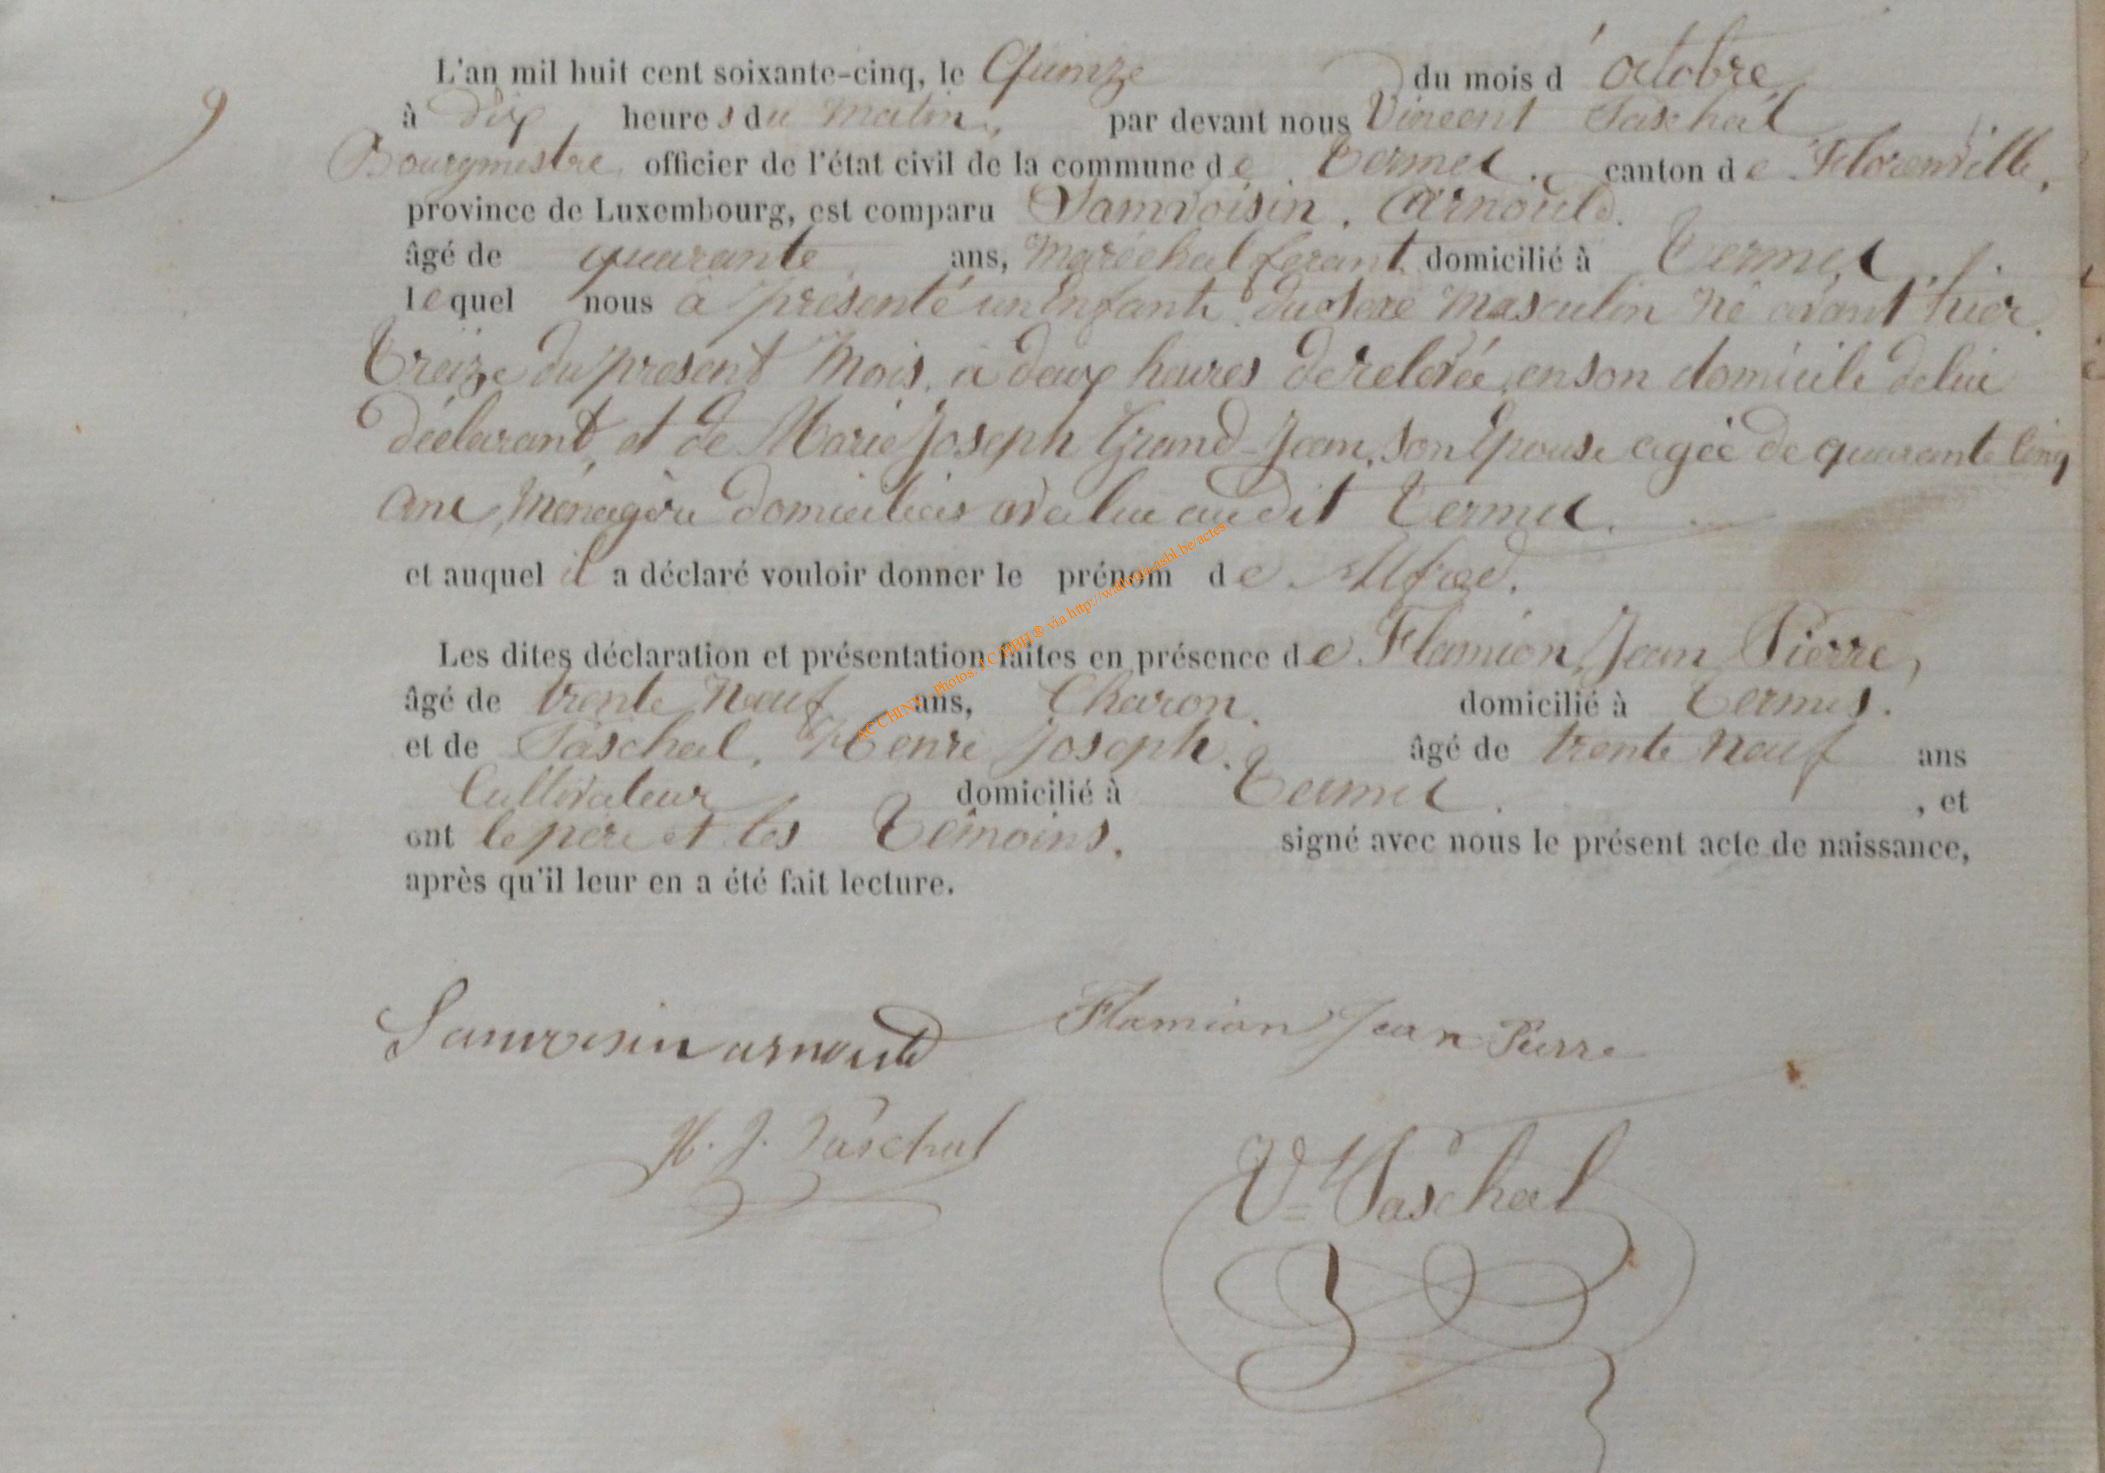 L'an mil huit cent soixante-cinq, le Quinze du mois d'octobre,
à dix heures du matin, par devant nous Vincent Paschal
Bourgmestre, officier de l'état civil de la commune de Termes, canton de Florenville,
province de Luxembourg, est comparu Samvoisin, Arnould.
âgé de quarante ans, Maréchal ferant domicilié à Termes,
lequel nous à présenté un enfant du sexe masculin né avant hier
Treize du présent Mois, à deux heures de relevée, en son domicile de lui
déclarant, et de Marie Joseph Grand-Jean, son épouse agée de quarante Cinq
ans, Ménagère domiciliés avec lui au dit Termes.
et auquel il a déclaré vouloir donner le prénom de Alfred.
Les dites déclaration et présentation faites en présence de Flamion, Jean Pierre,
âgé de trente Neuf ans, Charon. domicilié à Termes.
et de Paschal, Henri Joseph. âgé de trente Neuf ans
Cultivateur domicilié à Termes. , et
ont le père et les Témoins. signé avec nous le présent acte de naissance,
après qu'il leur en a été fait lecture.
Samvoisin arnould Flamion Jean Pierre
H. J. Paschal
V= Paschal
9
ACCHINY - Photos via http://wallonia-asbl.be/actes